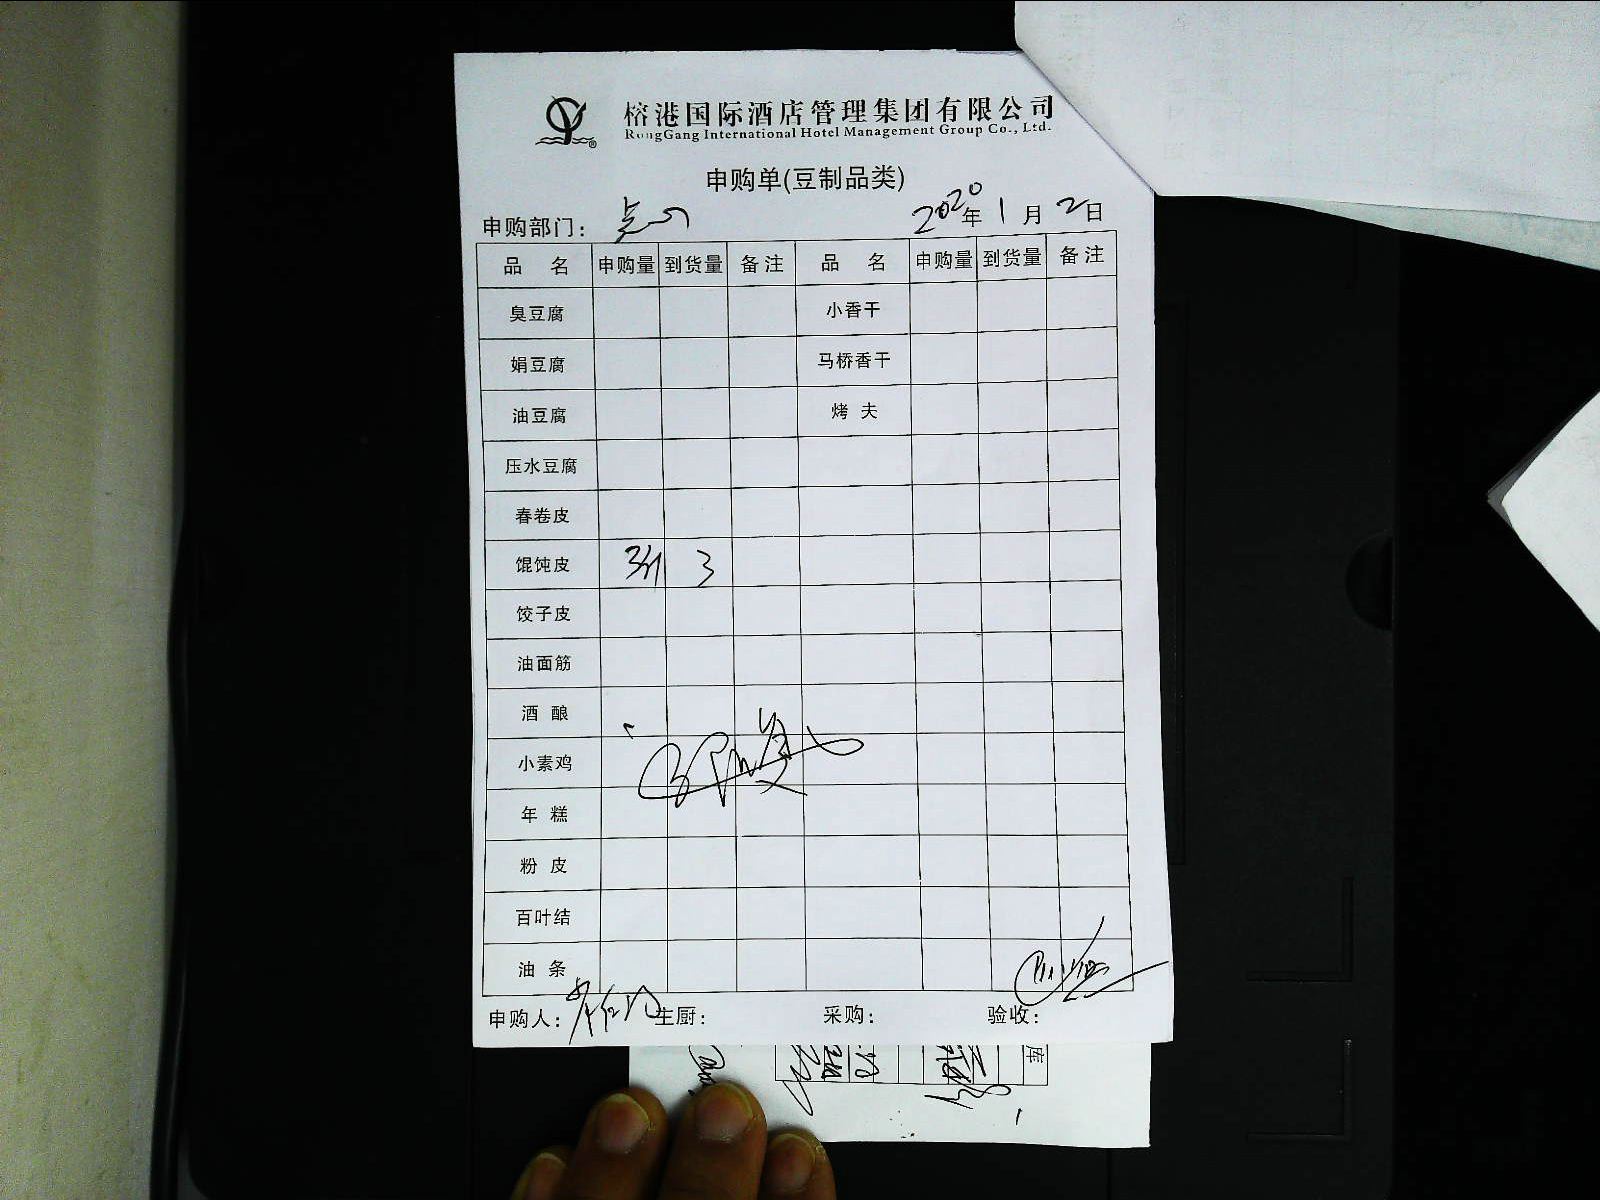 榕港国际酒店管理集团有限公司
RongGang International Hotel Management Group Co., Ltd.
申购单(豆制品类)
申购部门： 2020年1月2日
品 名 申购量 到货量 备注 品 名 申购量 到货量 备注
臭豆腐 小香干
娟豆腐 马桥香干
油豆腐 烤 夫
压水豆腐
春卷皮
馄饨皮 3 3
饺子皮
油面筋
酒 酿
小素鸡
年 糕
粉 皮
百叶结
油 条
申购人： 主厨： 采购： 验收：
库